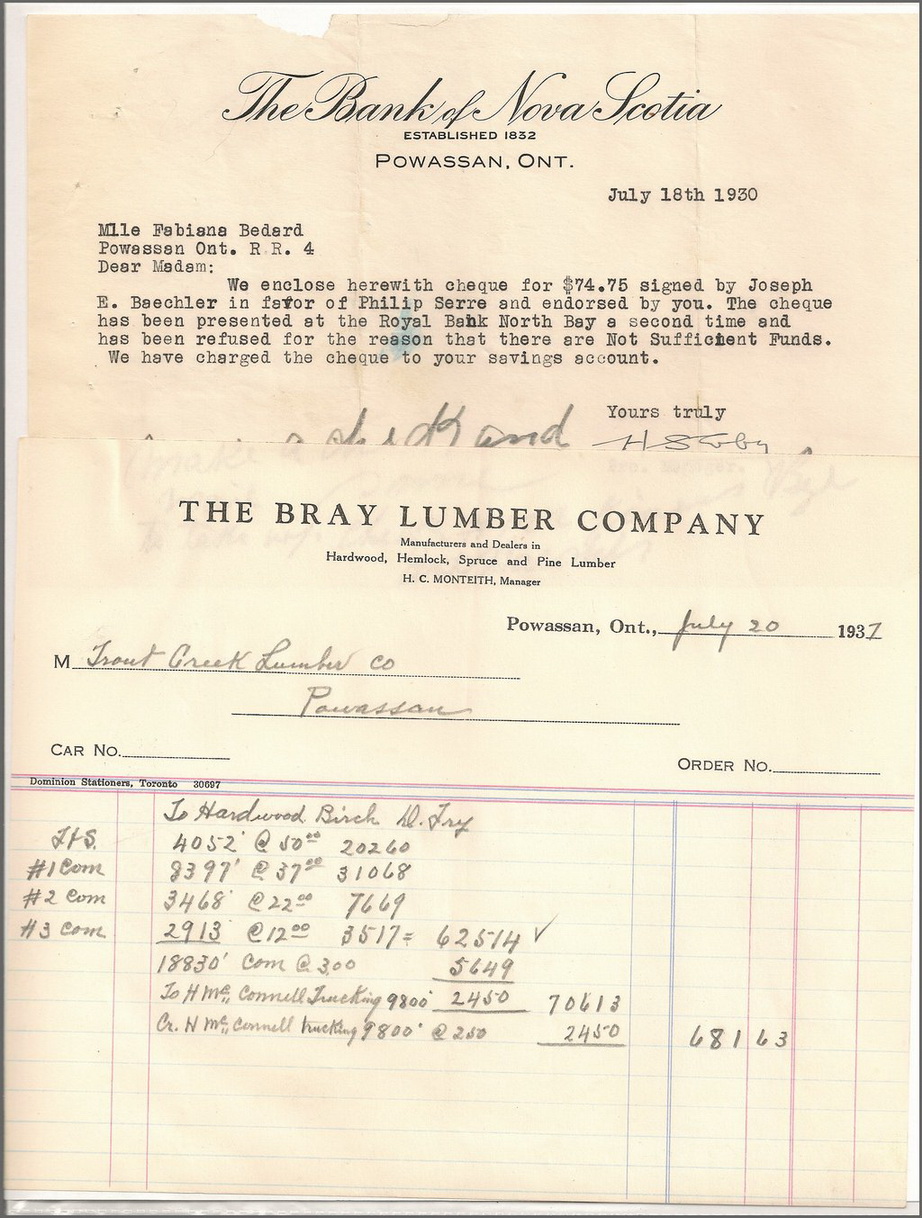 The Bank of Nova Scotia
ESTABLISHED 1832
POWASSAN, ONT.
July 18th 1930
Mlle Fabiana Bedard
Powassan Ont. R R. 4
Dear Madam:
We enclose herewith cheque for $74.75 signed by Joseph
E. Baechler in favor of Philip Serre and endorsed by you. The cheque
has been presented at the Royal Bank North Bay a second time and
has been refused for the reason that there are Not Sufficient Funds.
We have charged the cheque to your savings account.
Yours truly
and
make a
THE BRAY LUMBER COMPANY
Manufacturers and Dealers in
Hardwood, Hemlock, Spruce and Pine Lumber
H. C. MONTEITH, Manager
Powassan, Ont., July 20 1937
M Trout Creek Lumber co
Powassan
CAR NO.
ORDER NO.
Dominion Stationers, Toronto 30697
To Hardwood Birch D. Fry
4052' @ 50 00 20260
#1 Com 8397' @ 37 00 31068
#2 Com 3468' @ 22 00 7669
#3 Com 2913 @ 12 00 3517 = 62514 ✓
18830' Com @ 3.00 5649
To H Mc Connell Trucking 9800' 2450 70613
Cr. H Mc Connell trucking 9800' @ 250 2450 681 63